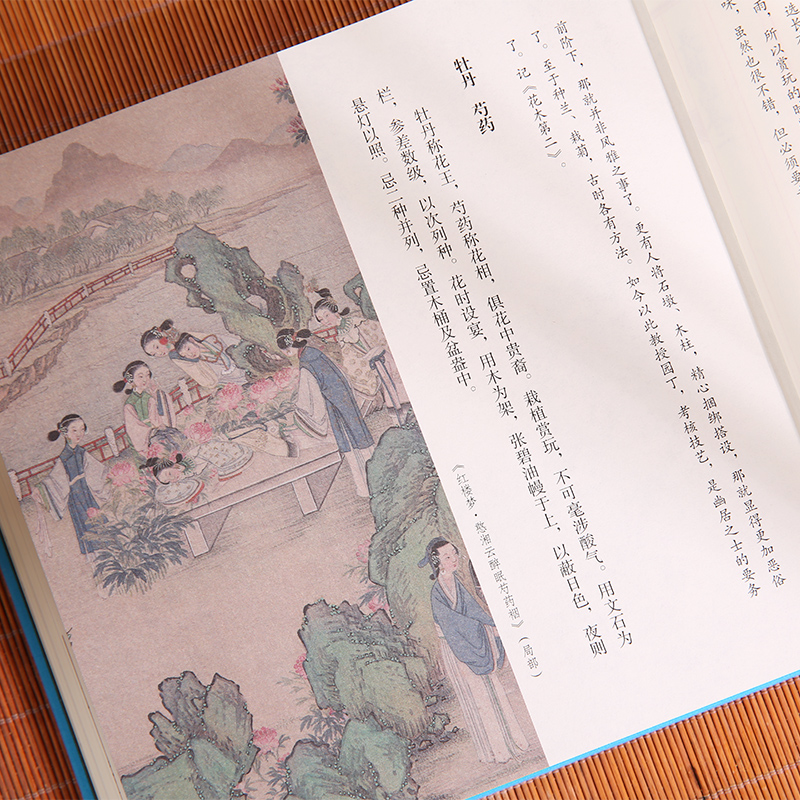 选长
雨，所以赏玩的时
味，虽然也很不错，但必须要
前阶下，那就并非风雅之事了。更有人将石墩、木柱，精心捆绑搭设，那就显得更加恶俗
了。至于种兰、栽菊，古时各有方法。如今以此教授园丁，考核技艺，是幽居之士的要务
了。记《花木第二》。
牡丹 芍药
牡丹称花王，芍药称花相，俱花中贵裔。栽植赏玩，不可毫涉酸气。用文石为
栏，参差数级，以次列种。花时设宴，用木为架，张碧油幔于上，以蔽日色，夜则
悬灯以照。忌二种并列，忌置木桶及盆盎中。
《红楼梦·憨湘云醉眠芍药裀》（局部）